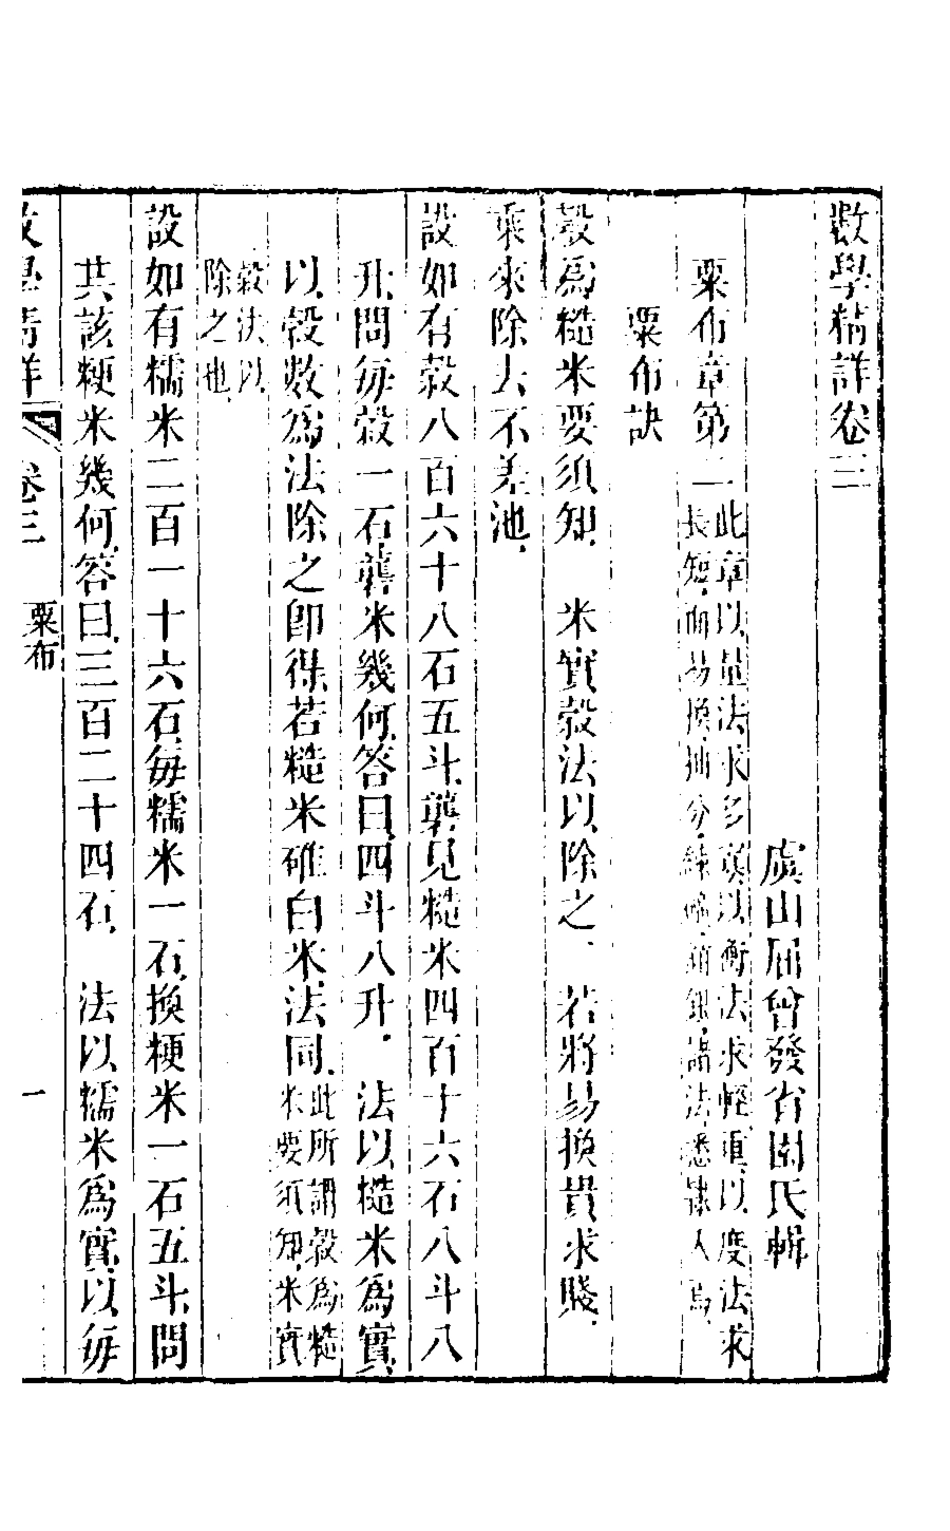 數學精詳卷三
虞山屈曾發省園氏輯
粟布章第二此章以量法求多寡以衡法求輕重以度法求
長短而易換抽分錬鎔諸法悉隷人焉
粟布訣
穀爲糙米要須知、米實穀法以除之、若將易換貴求賤、
乘來除去不差池、
設如有穀八百六十八石五斗、礱見糙米四百十六石八斗八
升、問每穀一石、礱米幾何、答曰、四斗八升、法以糙米爲實、
以穀數爲法除之卽得、若糙米碓白米、法同、此所謂穀爲糙
米要須知、米實
穀法以
除之也、
設如有糯米二百一十六石、每糯米一石、換粳米一石五斗、問
共該粳米幾何、答曰、三百二十四石、法以糯米爲實、以每
數學精詳 卷三 粟布 一